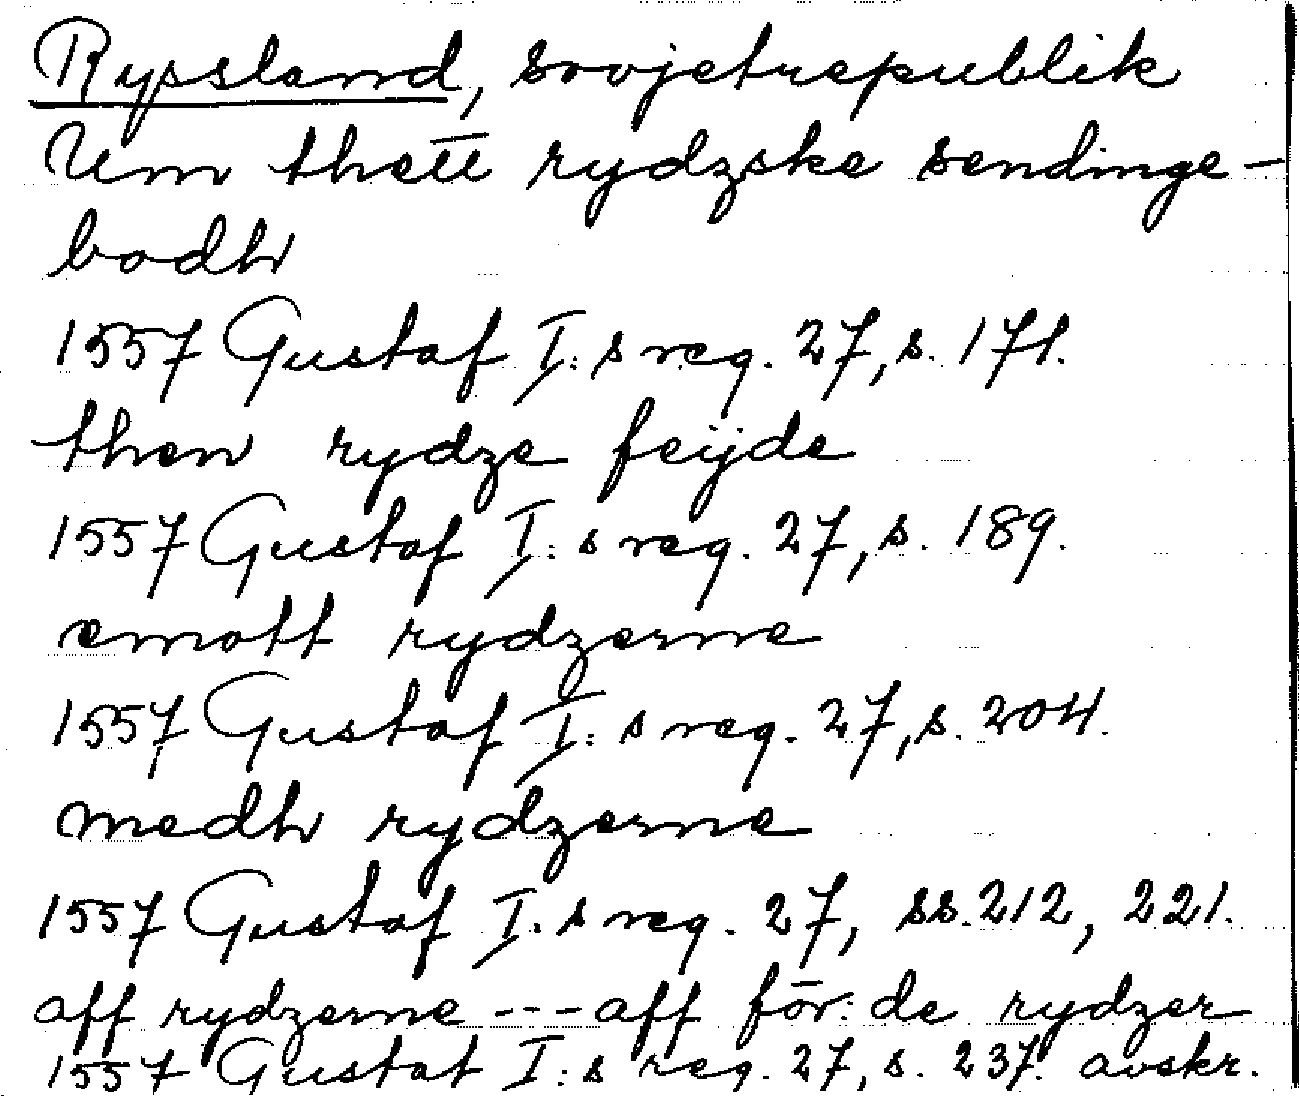 Ryssland, sovjetrepublik
Um thett rydzske sendinge-
bodh
1557 Gustaf I:s reg. 27, s. 171.
then rydze feijde
1557 Gustaf I:s reg. 27, s. 189.
emott rydzerne
1557 Gustaf I:s reg. 27, s. 204.
medh rydzerne
1557 Gustaf I:s reg. 27, ss. 212, 221.
aff rydzerne --- aff för:de rydzer
1557 Gustaf I:s reg. 27, s. 237. avskr.